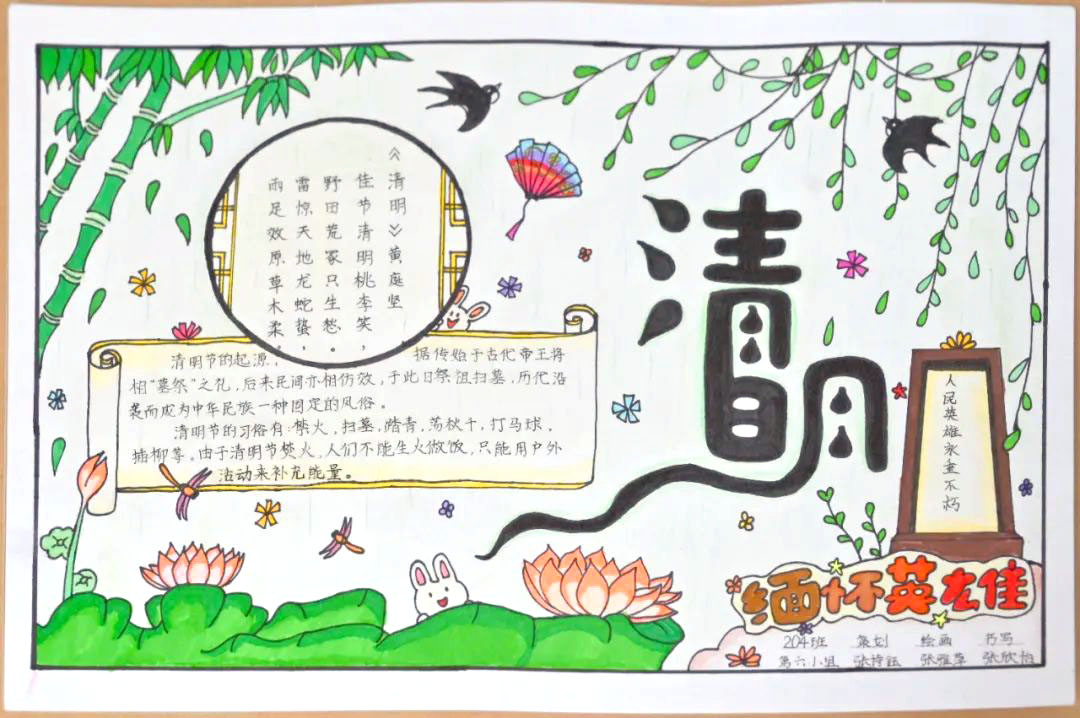 《清明》黄庭坚
佳节清明桃李笑，
野田荒冢只生愁。
雷惊天地龙蛇蛰，
雨足效原草木柔。
清明节的起源，据传始于古代帝王将
相“墓祭”之礼，后来民间亦相仿效，于此日祭祖扫墓，历代沿
袭而成为中华民族一种固定的风俗。
清明节的习俗有：禁火，扫墓，踏青，荡秋千，打马球，
插柳等。由于清明节焚火，人们不能生火做饭，只能用户外
活动来补充能量。
清明
人民英雄永垂不朽
缅怀英雄
204班 策划 绘画 书写
第六小组 张欣怡